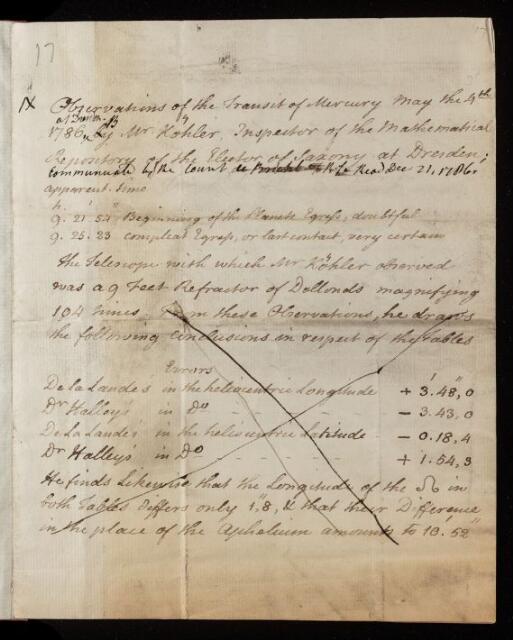 17
IX Observations of the Transit of Mercury May the 4th
at Dresden
1786, By Mr Köhler, Inspector of the Mathematical
Repository of the Elector of Saxony at Dresden;
Communicated by the Count de Bruhl F.R.S. Read Dec 21, 1786.
apparent time
h. ' "
9. 21. 54 Beginning of the Planets Egress, doubtful
9. 25. 23 compleat Egress, or last contact, very certain
The Telescope with which Mr Köhler observed
was a 9 Feet Refractor of Dollonds magnifying
104 times. From these Observations, he draws
the following conclusions in respect of the Tables
Errors ' "
De la Lande's in the heliocentric Longitude + 3.48,0
Dr Halley's in Do - 3.43,0
De la Lande's in the heliocentric Latitude - 0.18,4
Dr Halley's in Do + 1.54,3
He finds Likewise that the Longitude of the ☊ in
both Tables differs only 1",8, & that their Difference
in the place of the Aphelium amounts to 18'.52"